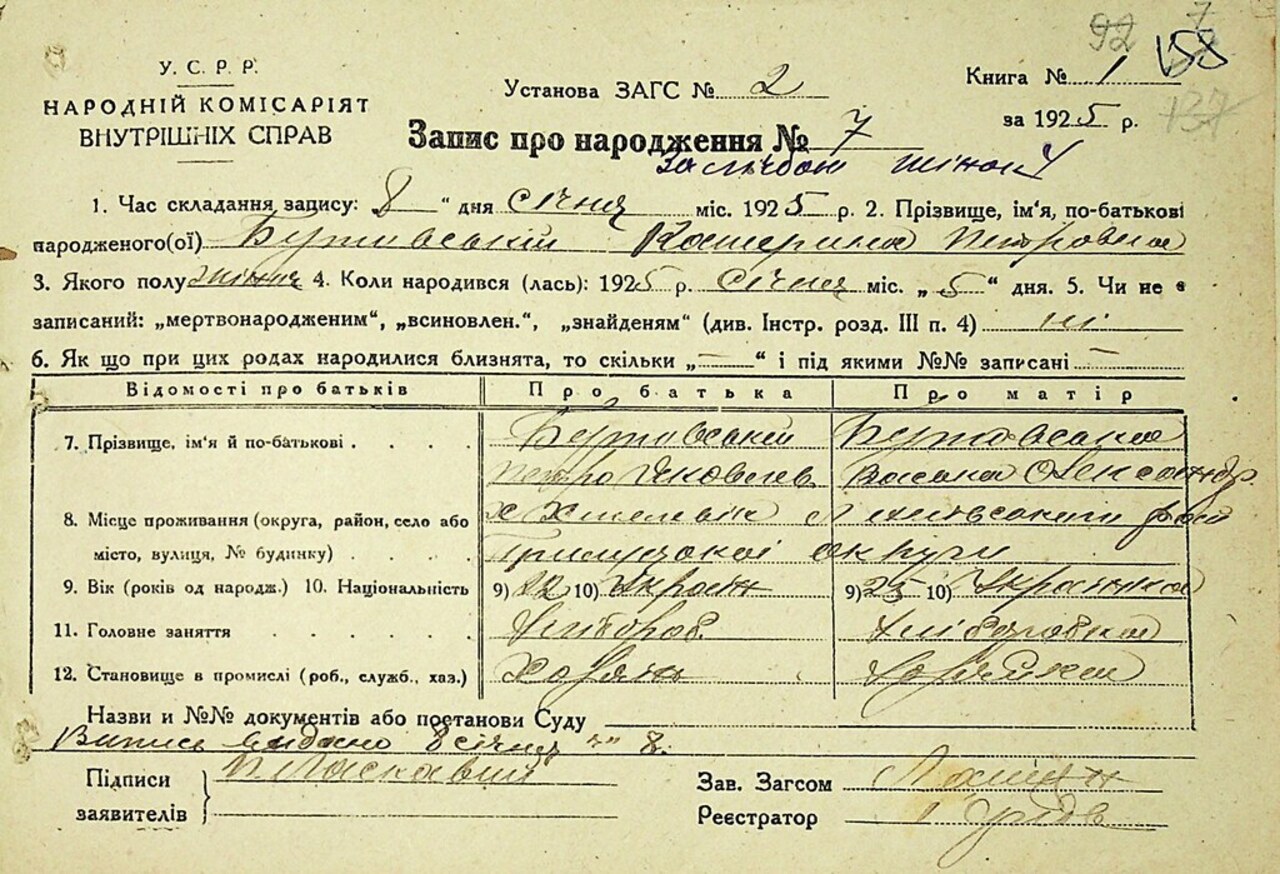 92 7
У. С. Р. Р.
НАРОДНІЙ КОМІСАРІЯТ
ВНУТРІШНІХ СПРАВ
Установа ЗАГС № 2
Книга № 1
за 1925 р.
137
Запис про народження № 7
жінок 4
1. Час складання запису: 8 " дня січня міс. 1925 р. 2. Прізвище, ім'я, по-батькові
народженого(ої) Катерина Петровна
3. Якого полу жіноч 4. Коли народився (лась): 1925 р. січня міс. „ 5 " дня. 5. Чи не є
записаний: „мертвонародженим", „всиновлен.", „знайденям" (див. Інстр. розд. III п. 4) ні
6. Як що при цих родах народилися близнята, то скільки „ — " і під якими №№ записані —
Відомості про батьків Про батька Про матір
7. Прізвище, ім'я й по-батькові . . . .
Петро Яковлев Олександр.
8. Місце проживання (округа, район, село або
місто, вулиця, № будинку) . . . . Прилуцької округи
9. Вік (років од народж.) 10. Національність 9) 22 10) Україн 9) 25 10) Українка
11. Головне заняття . . . . . . Хлібороб. Хліборобка
12. Становище в промислі (роб., служб., хаз.) Хозяїн Хозяйка
Назви и №№ документів або постанови Суду
Випись видано 8 січня
Підписи
заявителів
П. Ласкавий
Зав. Загсом
Реєстратор